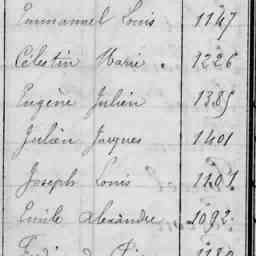 Emmanuel Louis 1147
Célestin Marie. 1226
Eugène Julien 1385
Julien Jacques 1401
Joseph Louis 1107
Emile Alexandre 1092